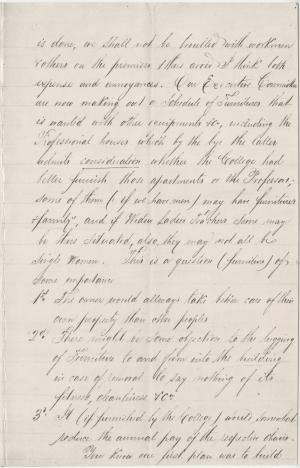 is done, we shall not be troubled with workmen
& others on the premises & thus avoid I think both
expense and annoyances. Our Executive Committee
are now making out a Schedule of Furnitures that
is wanted with other equipments &c, including the
Professional houses which by the bye the latter
admits consideration whether the College had
better furnish those apartments or the Professors,
some of them (if we have men) may have furniture
& family, and if Widow Ladies Teachers some may
be thus situated, also they may not all be
Single Women. This is a question (furniture) of
some importance
1st Its owner would allways take better care of their
own property than other peoples
2d There might be some objection to the lugging
of Furniture to and from into the building
in case of removal to say nothing of its
fitness, cleanliness &c
3d It (if furnished by the College) would somewhat
reduce the annual pay of the respective chairs.
You know our first plan was to build